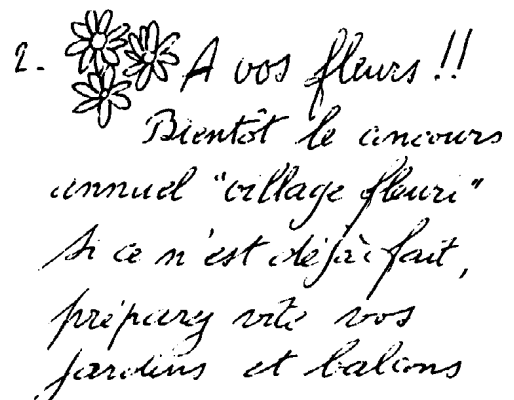 2- A vos fleurs !!
Bientôt le concours
annuel "village fleuri"
si ce n'est déjà fait,
préparez vite vos
jardins et balcons